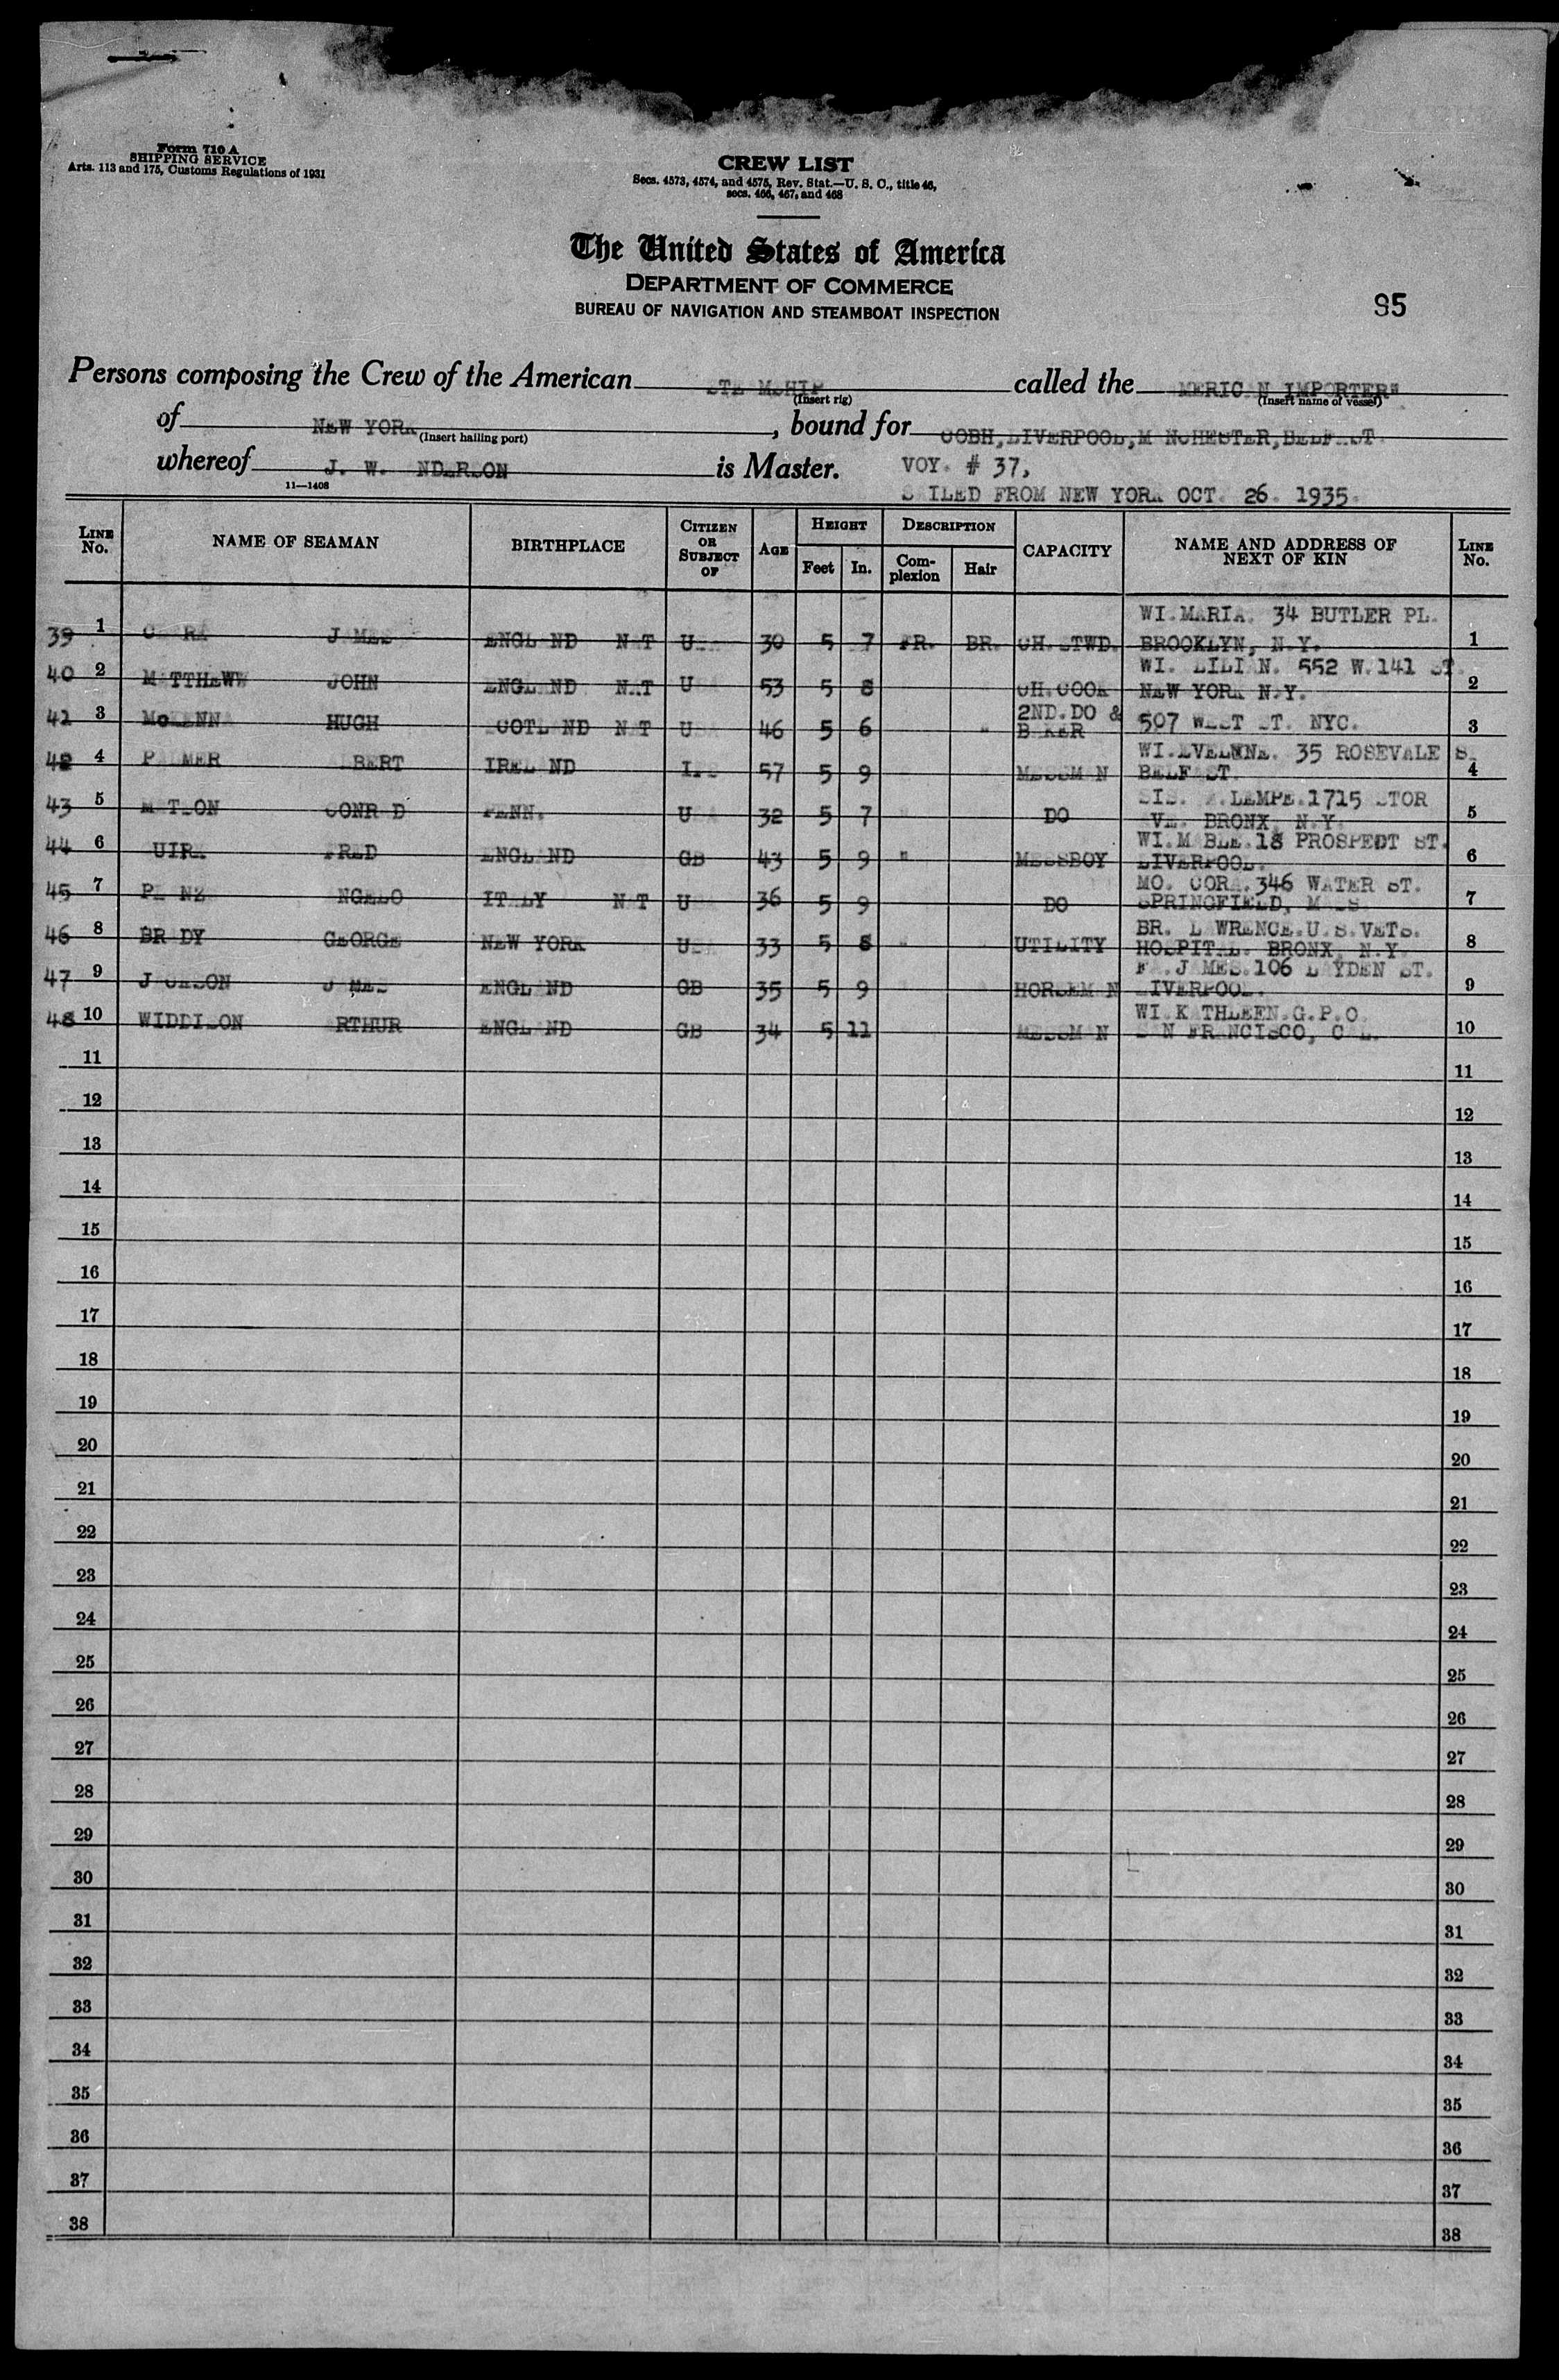 Form 710 A
SHIPPING SERVICE
Arts. 113 and 175, Customs Regulations of 1931
CREW LIST
Secs. 4573, 4574, and 4575, Rev. Stat.—U. S. C., title 46,
secs. 466, 467, and 468
The United States of America
DEPARTMENT OF COMMERCE
BUREAU OF NAVIGATION AND STEAMBOAT INSPECTION
95
Persons composing the Crew of the American STEAMSHIP called the AMERICAN IMPORTER"
(Insert rig) (Insert name of vessel)
of NEW YORK, bound for COBH, LIVERPOOL, MANCHESTER, BELFAST.
(Insert hailing port)
whereof J. W. ANDERSON is Master. VOY. # 37,
11—1408
SAILED FROM NEW YORK OCT. 26. 1935.
LINE No. NAME OF SEAMAN BIRTHPLACE CITIZEN OR SUBJECT OF AGE HEIGHT Feet In. DESCRIPTION Complexion Hair CAPACITY NAME AND ADDRESS OF NEXT OF KIN LINE No.
WI. MARIA. 34 BUTLER PL.
39 1 JAMES ENGLAND NAT USA 30 5 7 FR. BR. CH. STWD. BROOKLYN, N.Y. 1
WI. LILIAN. 552 W. 141 ST.
40 2 MATTHEWW JOHN ENGLAND NAT USA 53 5 8 CH. COOK NEW YORK N.Y. 2
2ND. DO &
41 3 McKENNA HUGH SCOTLAND NAT USA 46 5 6 " BAKER 507 WEST ST. NYC. 3
WI. EVELYNE. 35 ROSEVALE S.
42 4 PALMER ALBERT IRELAND IFS 57 5 9 MESSMAN BELFAST. 4
SIS. LEMPE. 1715 STOR
43 5 MATSON CONRAD PENN. USA 32 5 7 " DO AVE. BRONX, N.Y. 5
WI. MABLE. 18 PROSPEDT ST.
44 6 QUIRK FRED ENGLAND GB 43 5 9 " MESSBOY LIVERPOOL. 6
MO. CORA. 346 WATER ST.
45 7 ANGELO ITALY NAT USA 36 5 9 DO SPRINGFIELD, MASS. 7
BR. LAWRENCE. U.S. VETS.
46 8 BRADY GEORGE NEW YORK USA 33 5 8 " UTILITY HOSPITAL. BRONX, N.Y. 8
FA. JAMES. 106 DAYDEN ST.
47 9 JACKSON JAMES ENGLAND GB 35 5 9 HORSEMAN LIVERPOOL. 9
WI. KATHLEEN. G.P.O.
48 10 WIDDISON ARTHUR ENGLAND GB 34 5 11 MESSMAN SAN FRANCISCO, CAL. 10
11 11
12 12
13 13
14 14
15 15
16 16
17 17
18 18
19 19
20 20
21 21
22 22
23 23
24 24
25 25
26 26
27 27
28 28
29 29
30 30
31 31
32 32
33 33
34 34
35 35
36 36
37 37
38 38